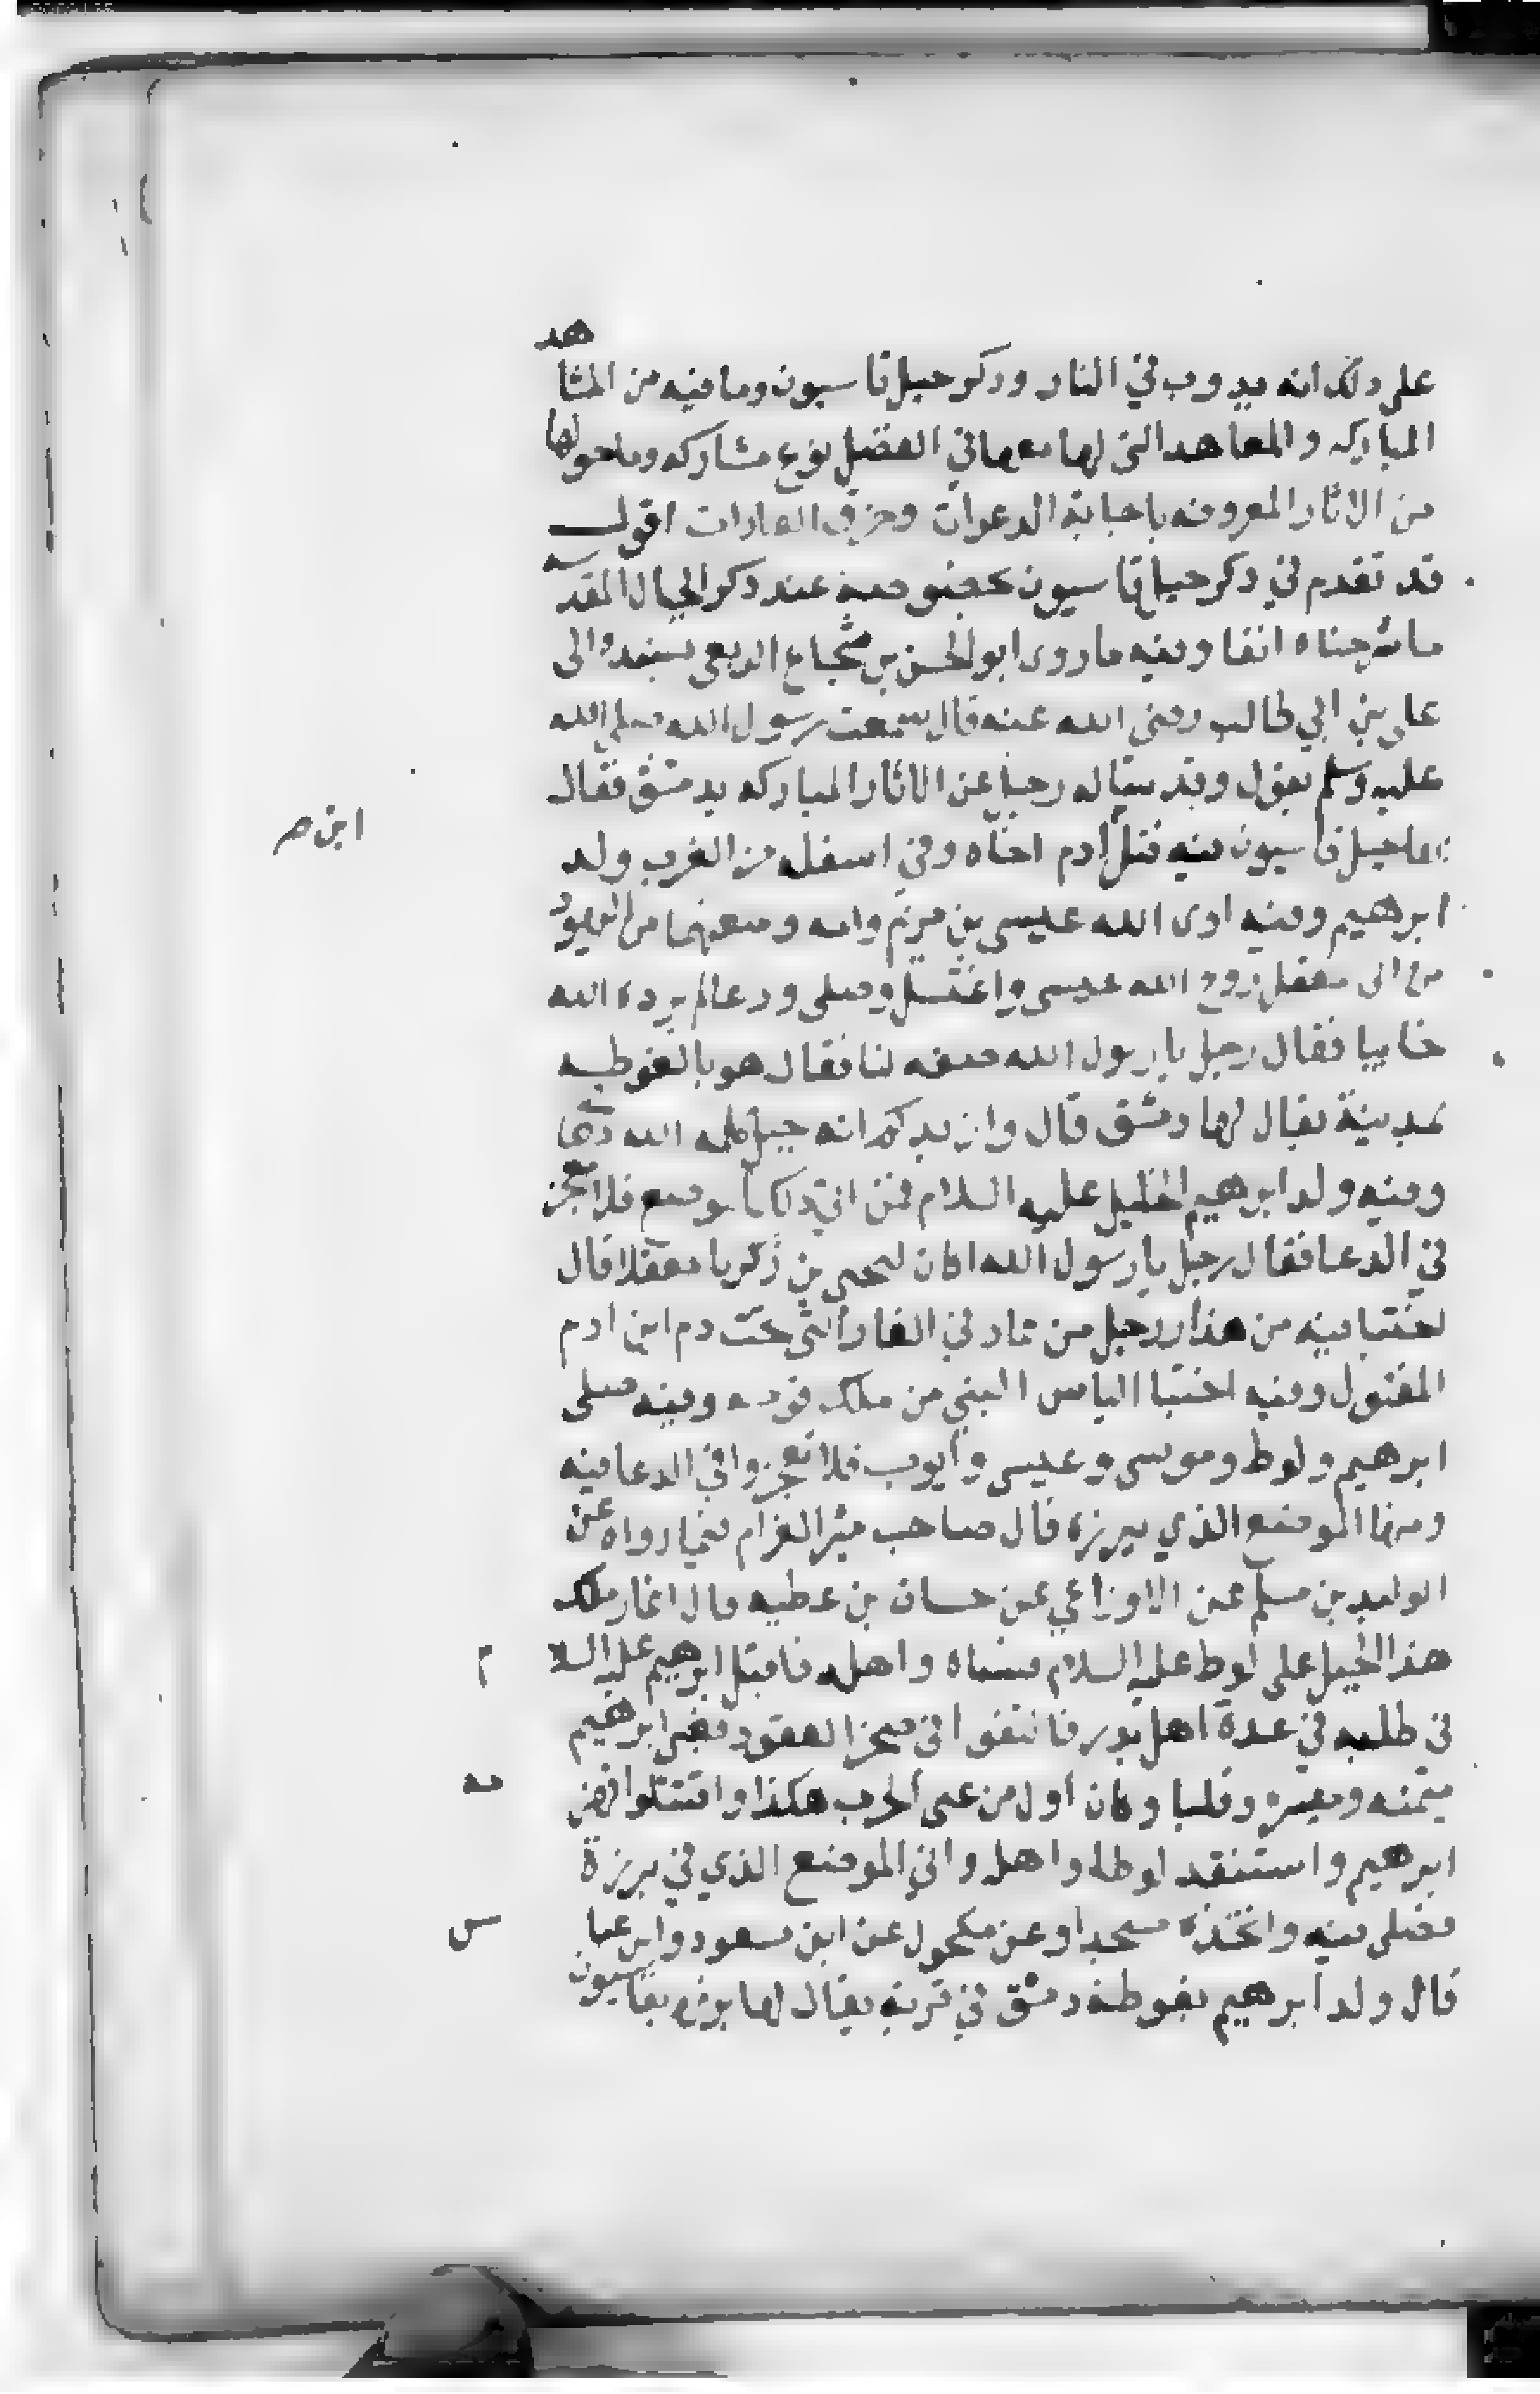 على ذلك انه يدوب في النار وذكر جبل قاسيون وما فيه من المشاهد
المباركه والمعاهد التي لها معها في الفضل نوع مشاركه وما حولها
من الاثار المعروفه باجابة الدعوات وخرق العادات اقول
قد تقدم في ذكر جبل قاسيون بخصوصه عند ذكر الجبال المقدسه
ما شرحناه انفا وفيه ما روى ابو الحسن بن شجاع الربعي بسنده الى
علي بن ابي طالب رضى الله عنه قال سمعت رسول الله صلى الله
عليه وسلم يقول وقد ساله رجل عن الاثار المباركه بدمشق فقال
بها جبل قاسيون فيه قتل ادم اخاه وفي اسفله من الغرب ولد
ابن صـ
ابرهيم وفيه اوى الله عيسى بن مريم وامه ومنعهما من اليهود
من اتى معقل روح الله عيسى واغتسل وصلى ودعا لم يرده الله
خايبا فقال رجل يا رسول الله صفه لنا فقال هو بالغوطه
بمدينة يقال لها دمشق قال وازيدكم انه جبل كلمه الله تعا
وفيه ولد ابرهيم الخليل عليه السلام فمن اتى ذلك الموضع فلا يعجز
في الدعا فقال رجل يا رسول الله اكان ليحيى بن زكريا معقلا قال
احتبا فيه من هدار رجل من عاد في الغار التي تحت دم ابن ادم
المقتول وفيه احتبا الياس النبي من ملك قومه وفيه صلى
ابرهيم ولوط وموسى وعيسى وايوب فلا تعجزوا في الدعا فيه
ومنها الموضع الذي ببرزه قال صاحب مثير الغرام فيما رواه عن
الوليد بن مسلم عن الاوزاعي عن حسان بن عطيه قال اغار ملك
هذا الجبل على لوط عليه السلام فسباه واهله فاقبل ابرهيم عليه السلا م
في طلبه في عدة اهل بدر فالتقوا في صحرا العقود فعبى ابرهيم
ميمنه وميسره وقلبا وكان أول من عبى الحرب هكذا واقتتلوا فهز مه
ابرهيم واستنقد لوطا واهله واتى الموضع الذي في برزة
فصلى فيه واتخذه مسجدا وعن مكحول عن ابن مسعود وابن عبا س
قال ولد ابرهيم بغوطة دمشق في قرية يقال لها برزه بقاسيون